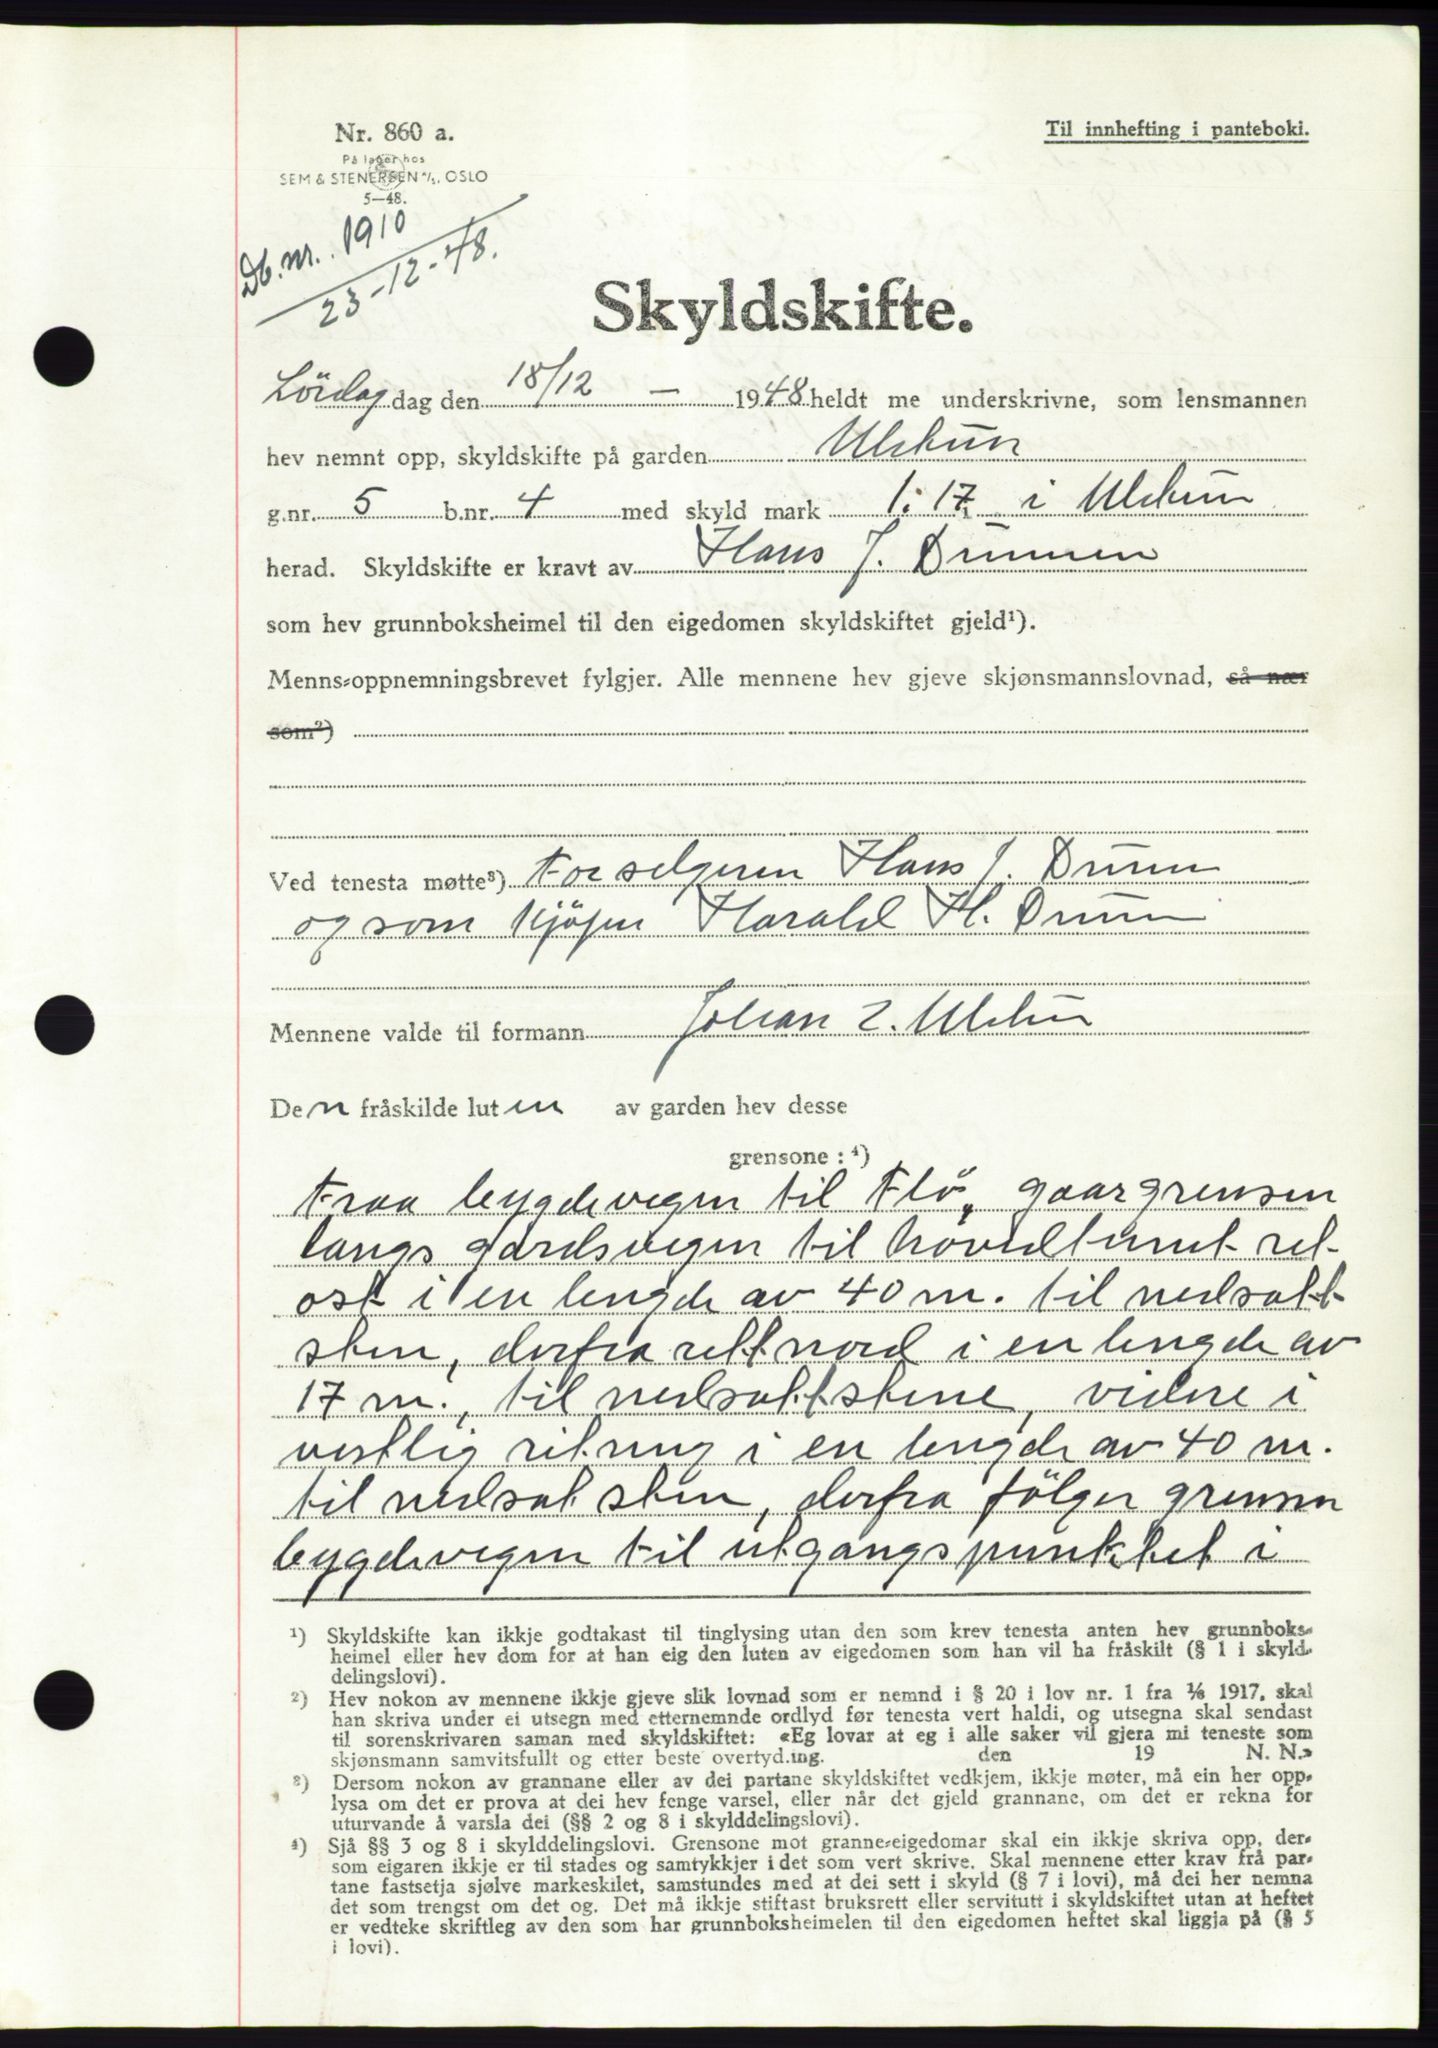 Nr. 860 a.
Til innhefting i panteboki.
På lager hos
SEM & STENERSEN A/S, OSLO
5—48.
Db. nr. 1910
23-12-48.
Skyldskifte.
Lördag dag den 18/12 — 1948 heldt me underskrivne, som lensmannen
hev nemnt opp, skyldskifte på garden Ulstein
g.nr. 5 b.nr. 4 med skyld mark 1.17 i Ulstein
herad. Skyldskifte er kravt av Hans J. Drunen
som hev grunnboksheimel til den eigedomen skyldskiftet gjeld¹).
Menns-oppnemningsbrevet fylgjer. Alle mennene hev gjeve skjønsmannslovnad, så nær
som²)
Ved tenesta møtte³) For selgeren Hans J.
og som kjöper Harald H.
Mennene valde til formann Johan Z. Ulstein
Den fråskilde luten av garden hev desse
grensone :⁴)
Fraa bygdevegen til Flö, gaargrensen
langs gardsvegen til hovedtunet ret
ost i en lengde av 40 m. til nedsatt
sten, derfra rett nord i en lengde av
17 m., til nedsatt stene, videre i
vestlig ritning i en lengde av 40 m.
til nedsat sten, derfra fölger grensen
bygdevegen til utgangspunktet i
¹) Skyldskifte kan ikkje godtakast til tinglysing utan den som krev tenesta anten hev grunnboks-
heimel eller hev dom for at han eig den luten av eigedomen som han vil ha fråskilt (§ 1 i skyld-
delingslovi).
²) Hev nokon av mennene ikkje gjeve slik lovnad som er nemnd i § 20 i lov nr. 1 fra 1/6 1917, skal
han skriva under ei utsegn med etternemnde ordlyd før tenesta vert haldi, og utsegna skal sendast
til sorenskrivaren saman med skyldskiftet: «Eg lovar at eg i alle saker vil gjera mi teneste som
skjønsmann samvitsfullt og etter beste overtyd.ing. den 19 N. N.»
³) Dersom nokon av grannane eller av dei partane skyldskiftet vedkjem, ikkje møter, må ein her opp-
lysa om det er prova at dei hev fenge varsel, eller når det gjeld grannane, om det er rekna for
uturvande å varsla dei (§§ 2 og 8 i skylddelingslovi).
⁴) Sjå §§ 3 og 8 i skylddelingslovi. Grensone mot granne-eigedomar skal ein ikkje skriva opp, der-
som eigaren ikkje er til stades og samtykkjer i det som vert skrive. Skal mennene etter krav frå par-
tane fastsetja sjølve markeskilet, samstundes med at dei sett i skyld (§ 7 i lovi), må dei her nemna
det som trengst om det og. Det må ikkje stiftast bruksrett eller servitutt i skyldskiftet utan at heftet
er vedteke skriftleg av den som har grunnboksheimelen til den eigedomen heftet skal liggja på (§ 5
i lovi).